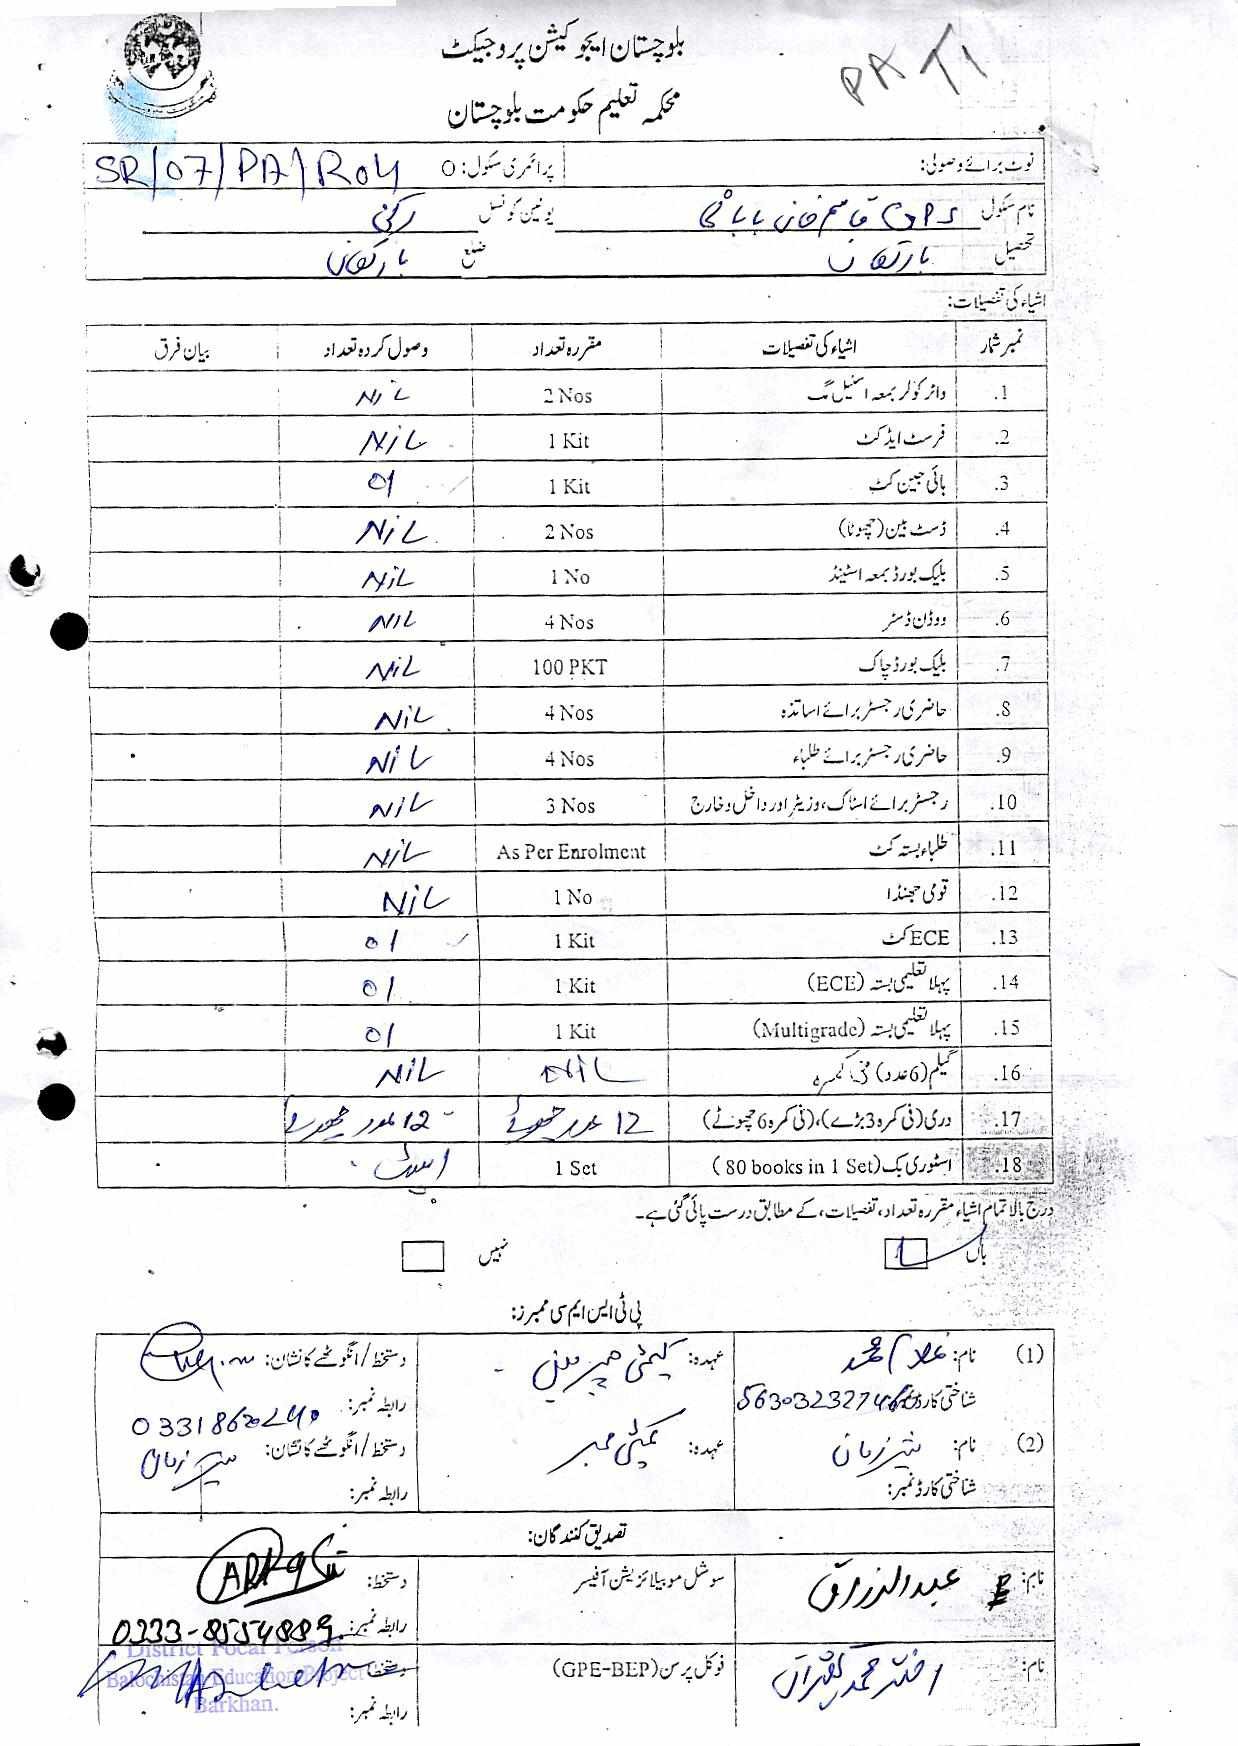 PAT1
بلوچستان ایجوکیشن پروجیکٹ
محکمہ تعلیم حکومت بلوچستان
نوٹ برائے وصولی: پرائمری سکول: O SR/07/PA/R04
نام سکول GPS قاسم خان یونین کونسل رکنی
تحصیل بارکھان ضلع بارکھان
اشیاء کی تفصیلات:
نمبر شمار اشیاء کی تفصیلات مقررہ تعداد وصول کردہ تعداد بیان فرق
.1 واٹر کولر بمعہ اسٹیل مگ 2 Nos NiL
.2 فرسٹ ایڈ کٹ 1 Kit NiL
.3 ہائی جین کٹ 1 Kit 01
.4 ڈسٹ بین (چھوٹا) 2 Nos NiL
.5 بلیک بورڈ بمعہ اسٹینڈ 1 No NiL
.6 ووڈن ڈسٹر 4 Nos NiL
.7 بلیک بورڈ چاک 100 PKT NiL
.8 حاضری رجسٹر برائے اساتذہ 4 Nos NiL
.9 حاضری رجسٹر برائے طلباء 4 Nos NiL
.10 رجسٹر برائے اسٹاک، وزیٹر اور داخل وخارج 3 Nos NiL
.11 طلباء بستہ کٹ As Per Enrolment NiL
.12 قومی جھنڈا 1 No NiL
.13 ECE کٹ 1 Kit 01
.14 پہلا تعلیمی بستہ (ECE) 1 Kit 01
.15 پہلا تعلیمی بستہ (Multigrade) 1 Kit 01
.16 گیلم (6 عدد) فی کمرہ NiL NiL
.17 دری (فی کمرہ 3 بڑے)، (فی کمرہ 6 چھوٹے) 12 عدد چھوٹے 12 عدد چھوٹے
.18 اسٹوری بک (80 books in 1 Set) 1 Set 1 سیٹ
درج بالا تمام اشیاء مقررہ تعداد، تفصیلات، کے مطابق درست پائی گئی ہے۔
ہاں نہیں
پی ٹی ایس ایم سی ممبرز:
(1) نام: غلام محمد عہدہ: کمیٹی چیرمین دستخط / انگوٹھے کا نشان:
شناختی کارڈ رابطہ نمبر:
(2) نام: شیر زمان عہدہ: کمیٹی ممبر دستخط / انگوٹھے کا نشان: شیر زمان
شناختی کارڈ نمبر: رابطہ نمبر:
تصدیق کنندگان:
نام: عبدالرزاق سوشل موبیلائزیشن آفیسر دستخط:
رابطہ نمبر: 0333-8554889
نام: اختر محمد کھتران فوکل پرسن (GPE-BEP) دستخط:
رابطہ نمبر:
District Focal Person
Balochistan Education Project
Barkhan.